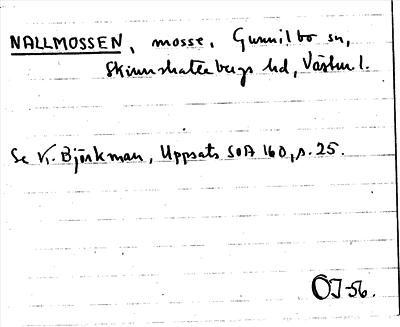 NALLMOSSEN, mosse, Gunnilbo sn,
Skinnskattebergs hd, Västm l.
Se K. Björkman, Uppsats SOA 160, s. 25.
OJ-56.